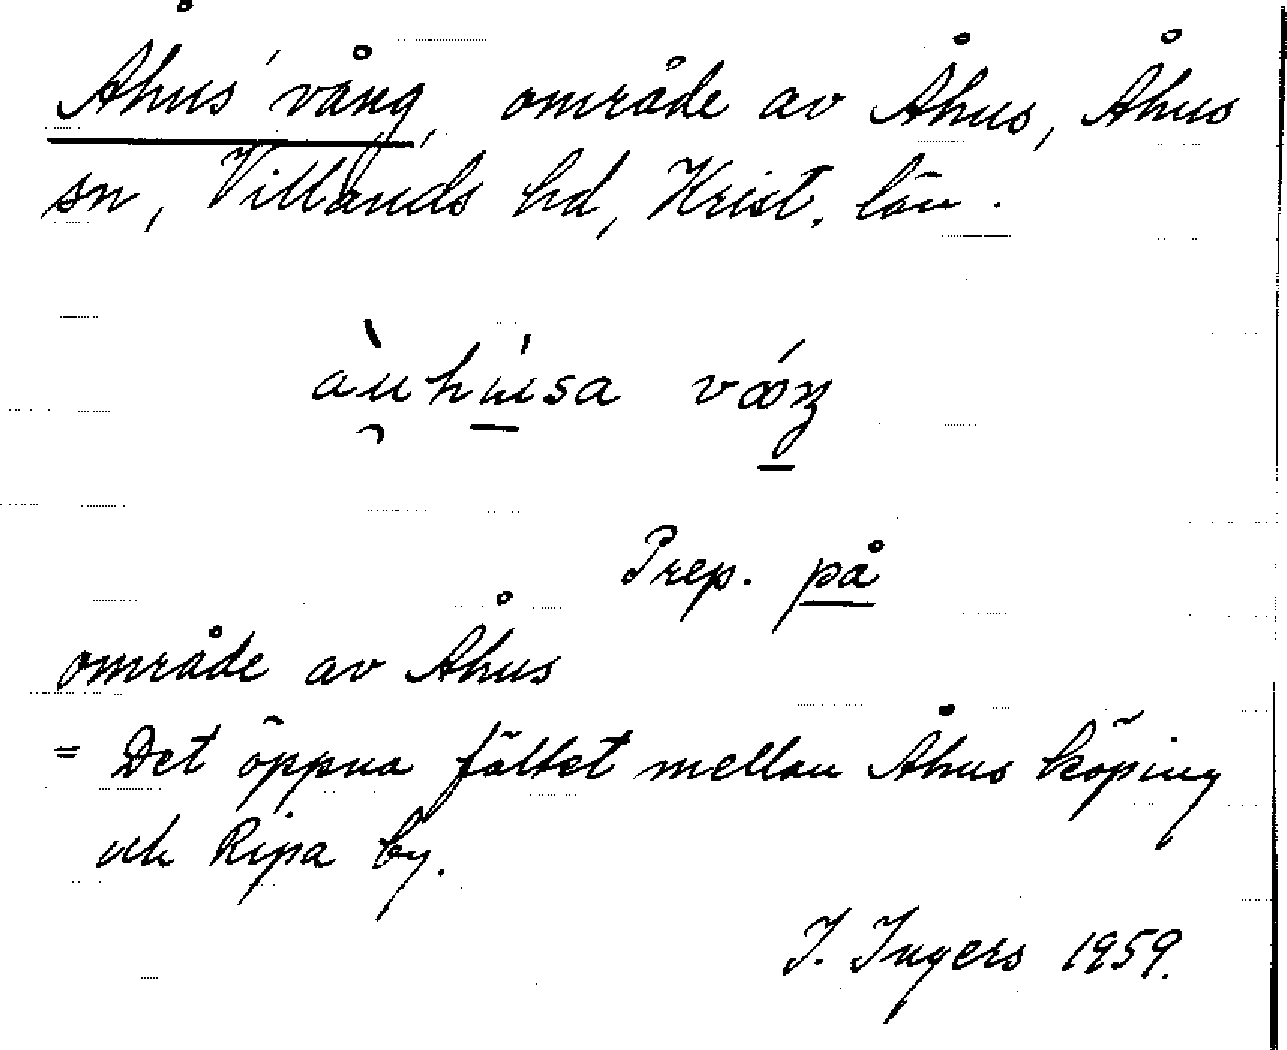 Åhus' vång, område av Åhus, Åhus
sn, Villands hd, Krist. län.
àu̯húsa vóŋ
Prep. på
område av Åhus
= Det öppna fältet mellan Åhus köping
och Ripa by.
I. Ingers 1959.